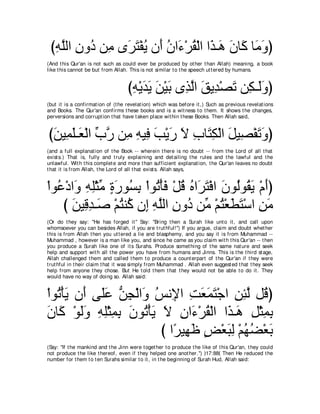 (وَمَا كَانَ هَـذَا الْقُرْءَانُ أَن يُفْتَرَى مِن دُونِ اللَّهِ)
(And this Qur'an is not such as could ever be produced by other than Allah) meaning, a book
like this cannot be but from Allah. This is not similar to the speech uttered by humans.
(وَلَـكِن تَصْدِيقَ الَّذِي بَيْنَ يَدَيْهِ)
(but it is a confirmation of (the revelation) which was before it,) Such as previous revelations
and Books. The Qur'an confirms these books and is a witness to them. It shows the changes,
perversions and corruption that have taken place within these Books. Then Allah said,
(وَتَفْصِيلَ الْكِتَابِ لاَ رَيْبَ فِيهِ مِن رَّبِّ الْعَـلَمِينَ)
(and a full explanation of the Book -- wherein there is no doubt -- from the Lord of all that
exists.) That is, fully and truly explaining and detailing the rules and the lawful and the
unlawful. With this complete and more than sufficient explanation, the Qur'an leaves no doubt
that it is from Allah, the Lord of all that exists. Allah says,
(أَمْ يَقُولُونَ افْتَرَاهُ قُلْ فَأْتُواْ بِسُورَةٍ مِّثْلِهِ وَادْعُواْ
مَنِ اسْتَطَعْتُمْ مِّن دُونِ اللَّهِ إِن كُنتُمْ صَـدِقِينَ )
(Or do they say: "He has forged it" Say: "Bring then a Surah like unto it, and call upon
whomsoever you can besides Allah, if you are truthful!") If you argue, claim and doubt whether
this is from Allah then you uttered a lie and blasphemy, and you say it is from Muhammad --
Muhammad , however is a man like you, and since he came as you claim with this Qur'an -- then
you produce a Surah like one of its Surahs. Produce something of the same nature and seek
help and support with all the power you have from humans and Jinns. This is the third stage,
Allah challenged them and called them to produce a counterpart of the Qur'an if they were
truthful in their claim that it was simply from Muhammad . Allah even suggested that they seek
help from anyone they chose. But He told them that they would not be able to do it. They
would have no way of doing so. Allah said:
(قُل لَّئِنِ اجْتَمَعَتِ الإِنسُ وَالْجِنُّ عَلَى أَن يَأْتُواْ
بِمِثْلِ هَـذَا الْقُرْءَانِ لاَ يَأْتُونَ بِمِثْلِهِ وَلَوْ كَانَ
بَعْضُهُمْ لِبَعْضٍ ظَهِيرًا )
(Say: "If the mankind and the Jinn were together to produce the like of this Qur'an, they could
not produce the like thereof, even if they helped one another.") )17:88( Then He reduced the
number for them to ten Surahs similar to it, in the beginning of Surah Hud, Allah said: